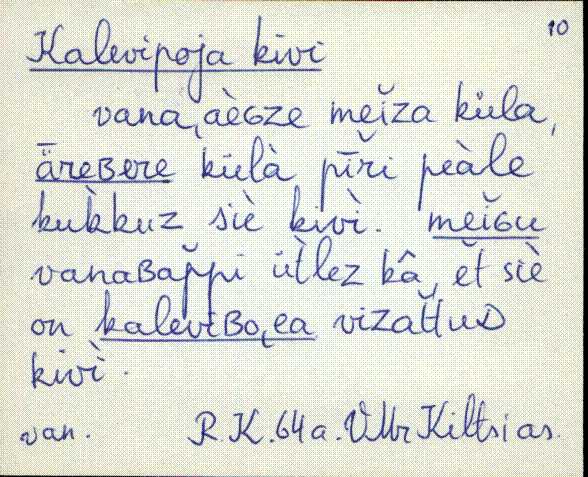 10
Kalevipoja kivi
vana, àèɢze mei̯za kü̆la,
ǟreʙere kü̆là pīři peàle
kuk̀kuz siè kivì. mei̯ɢu
vanaʙap̆pi üt̀lez kâ, ět siè
on kaleviʙo,ea vizat̆tuᴅ
kivì.
van. R.K. 64 a. VMr Kiltsi as.